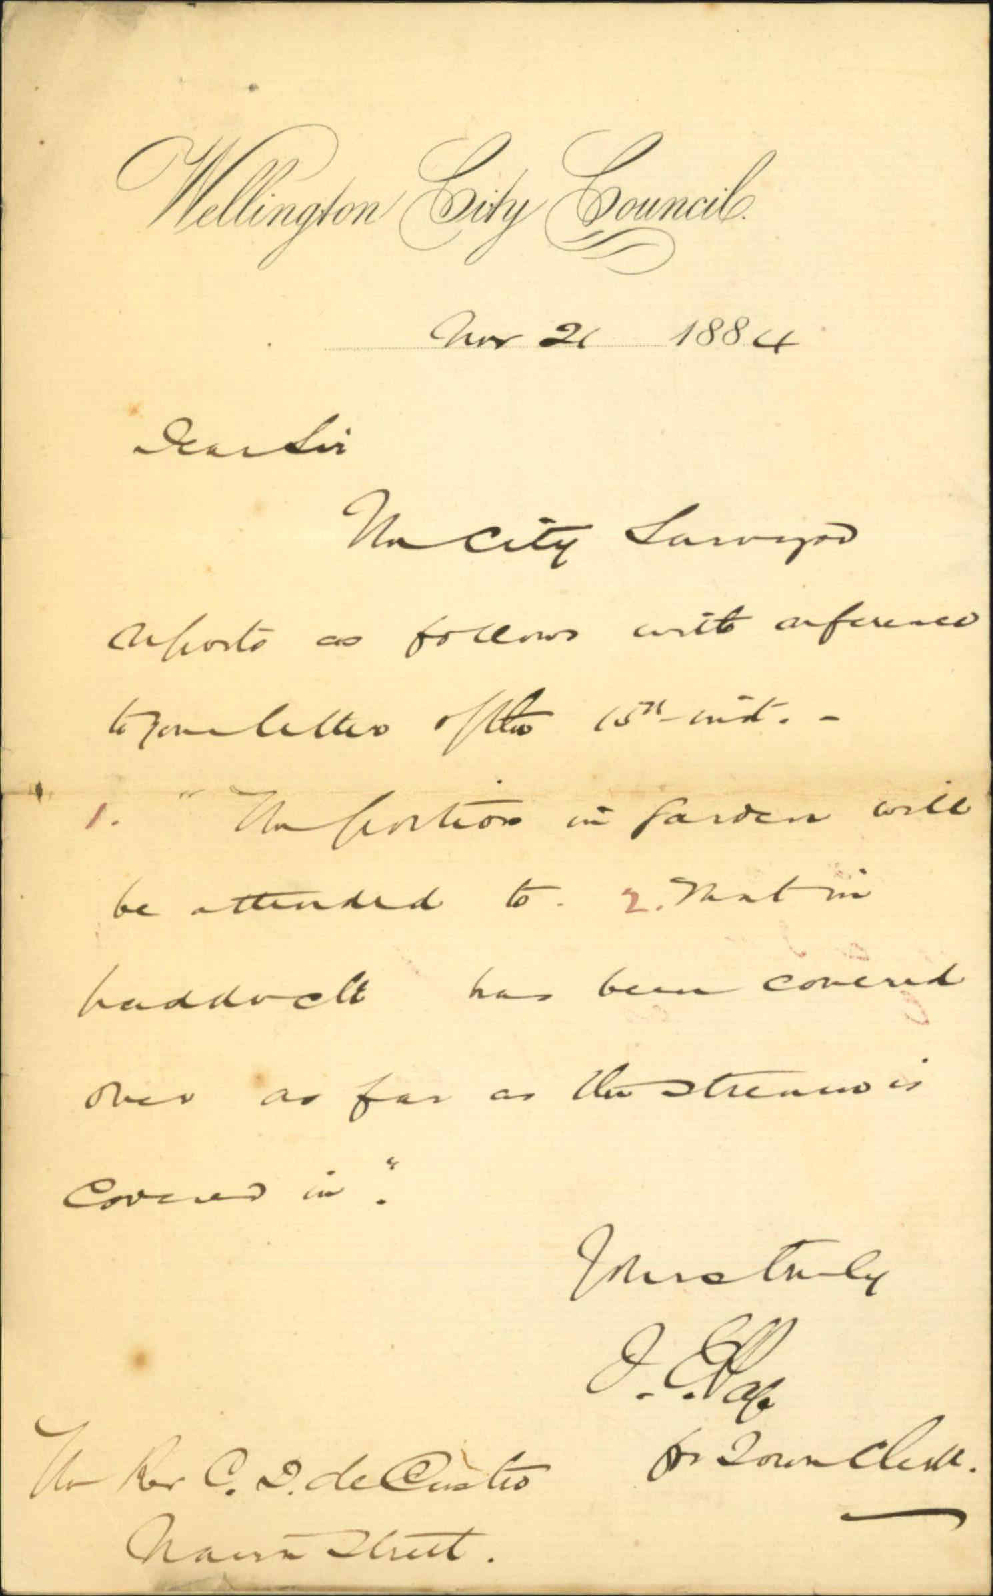 Wellington City Council.
Nov 21 1884
Dear Sir
The City Surveyor
reports as follows with reference
to your letter of the 15th inst. -
1. "The portion in garden will
be attended to. 2. That in
paddock has been covered
over as far as the stream is
covered in".
Yours truly
J. E. Page
for Town Clerk.
The Rev C. D. de Castro
Nairn Street.